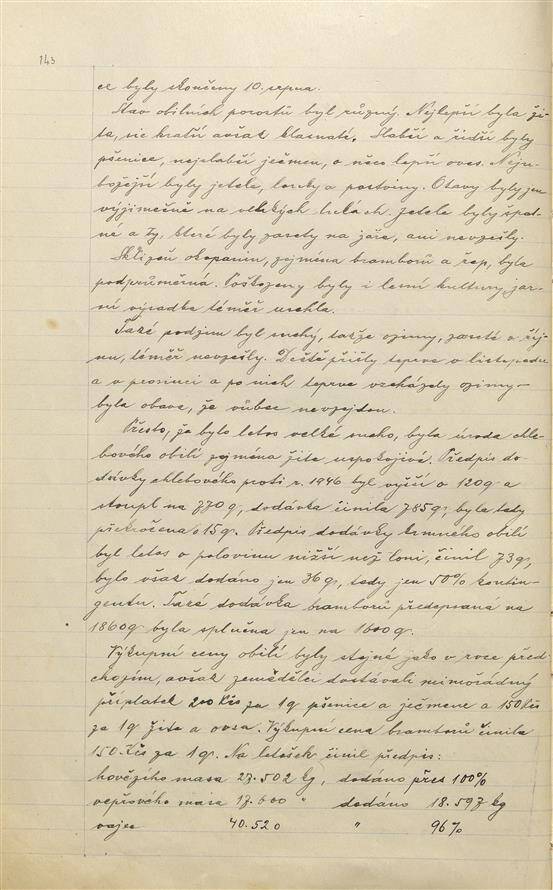 143
ce byly skončeny 10. srpna.
Stav obilních porostů byl různý. Nejlepší byla ži-
ta, sic kratší avšak klasnatá. Slabší a řidší byly
pšenice, nejslabší ječmen, o něco lepší oves. Neju-
božejší byly jetele, louky a pastviny. Otavy byly jen
výjimečně na vlhkých lukách. Jetele byly špat-
né a ty, které byly zasety na jaře, ani nevzešly.
Sklizeň okopanin, zejména bramborů a řep, byla
podprůměrná. Poškozeny byly i lesní kultury, jar-
ní výsadba téměř uschla.
Také podzim byl suchý, takže ozimy, zaseté v říj-
nu, téměř nevzešly. Deště přišly teprve v listopadu
a v prosinci a po nich teprve vzcházely ozimy -
byla obava, že vůbec nevzejdou.
Přesto, že bylo letos velké sucho, byla úroda chle-
bového obilí zejména žita uspokojivá. Předpis do-
dávky chlebového proti r. 1946 byl vyšší o 120 q a
stoupl na 770 q, dodávka činila 785 q, byla tedy
překročena o 15 q. Předpis dodávky krmného obilí
byl letos o polovinu nižší než loni, činil 73 q,
bylo však dodáno jen 36 q, tedy jen 50% kontin-
gentu. Také dodávka bramborů předepsaná na
1860 q byla splněna jen na 1600 q.
Výkupní ceny obilí byly stejné jako v roce před-
chozím, avšak zemědělci dostávali mimořádný
příplatek 200 Kčs za 1 q pšenice a ječmene a 150 Kčs
za 1 q žita a ovsa. Výkupní cena bramborů činila
150 Kčs za 1 q. Na letošek činil předpis:
hovězího masa 27.502 kg, dodáno přes 100%
vepřového masa 17.600 " dodáno 18.597 kg
vajec 40.520 " 96%